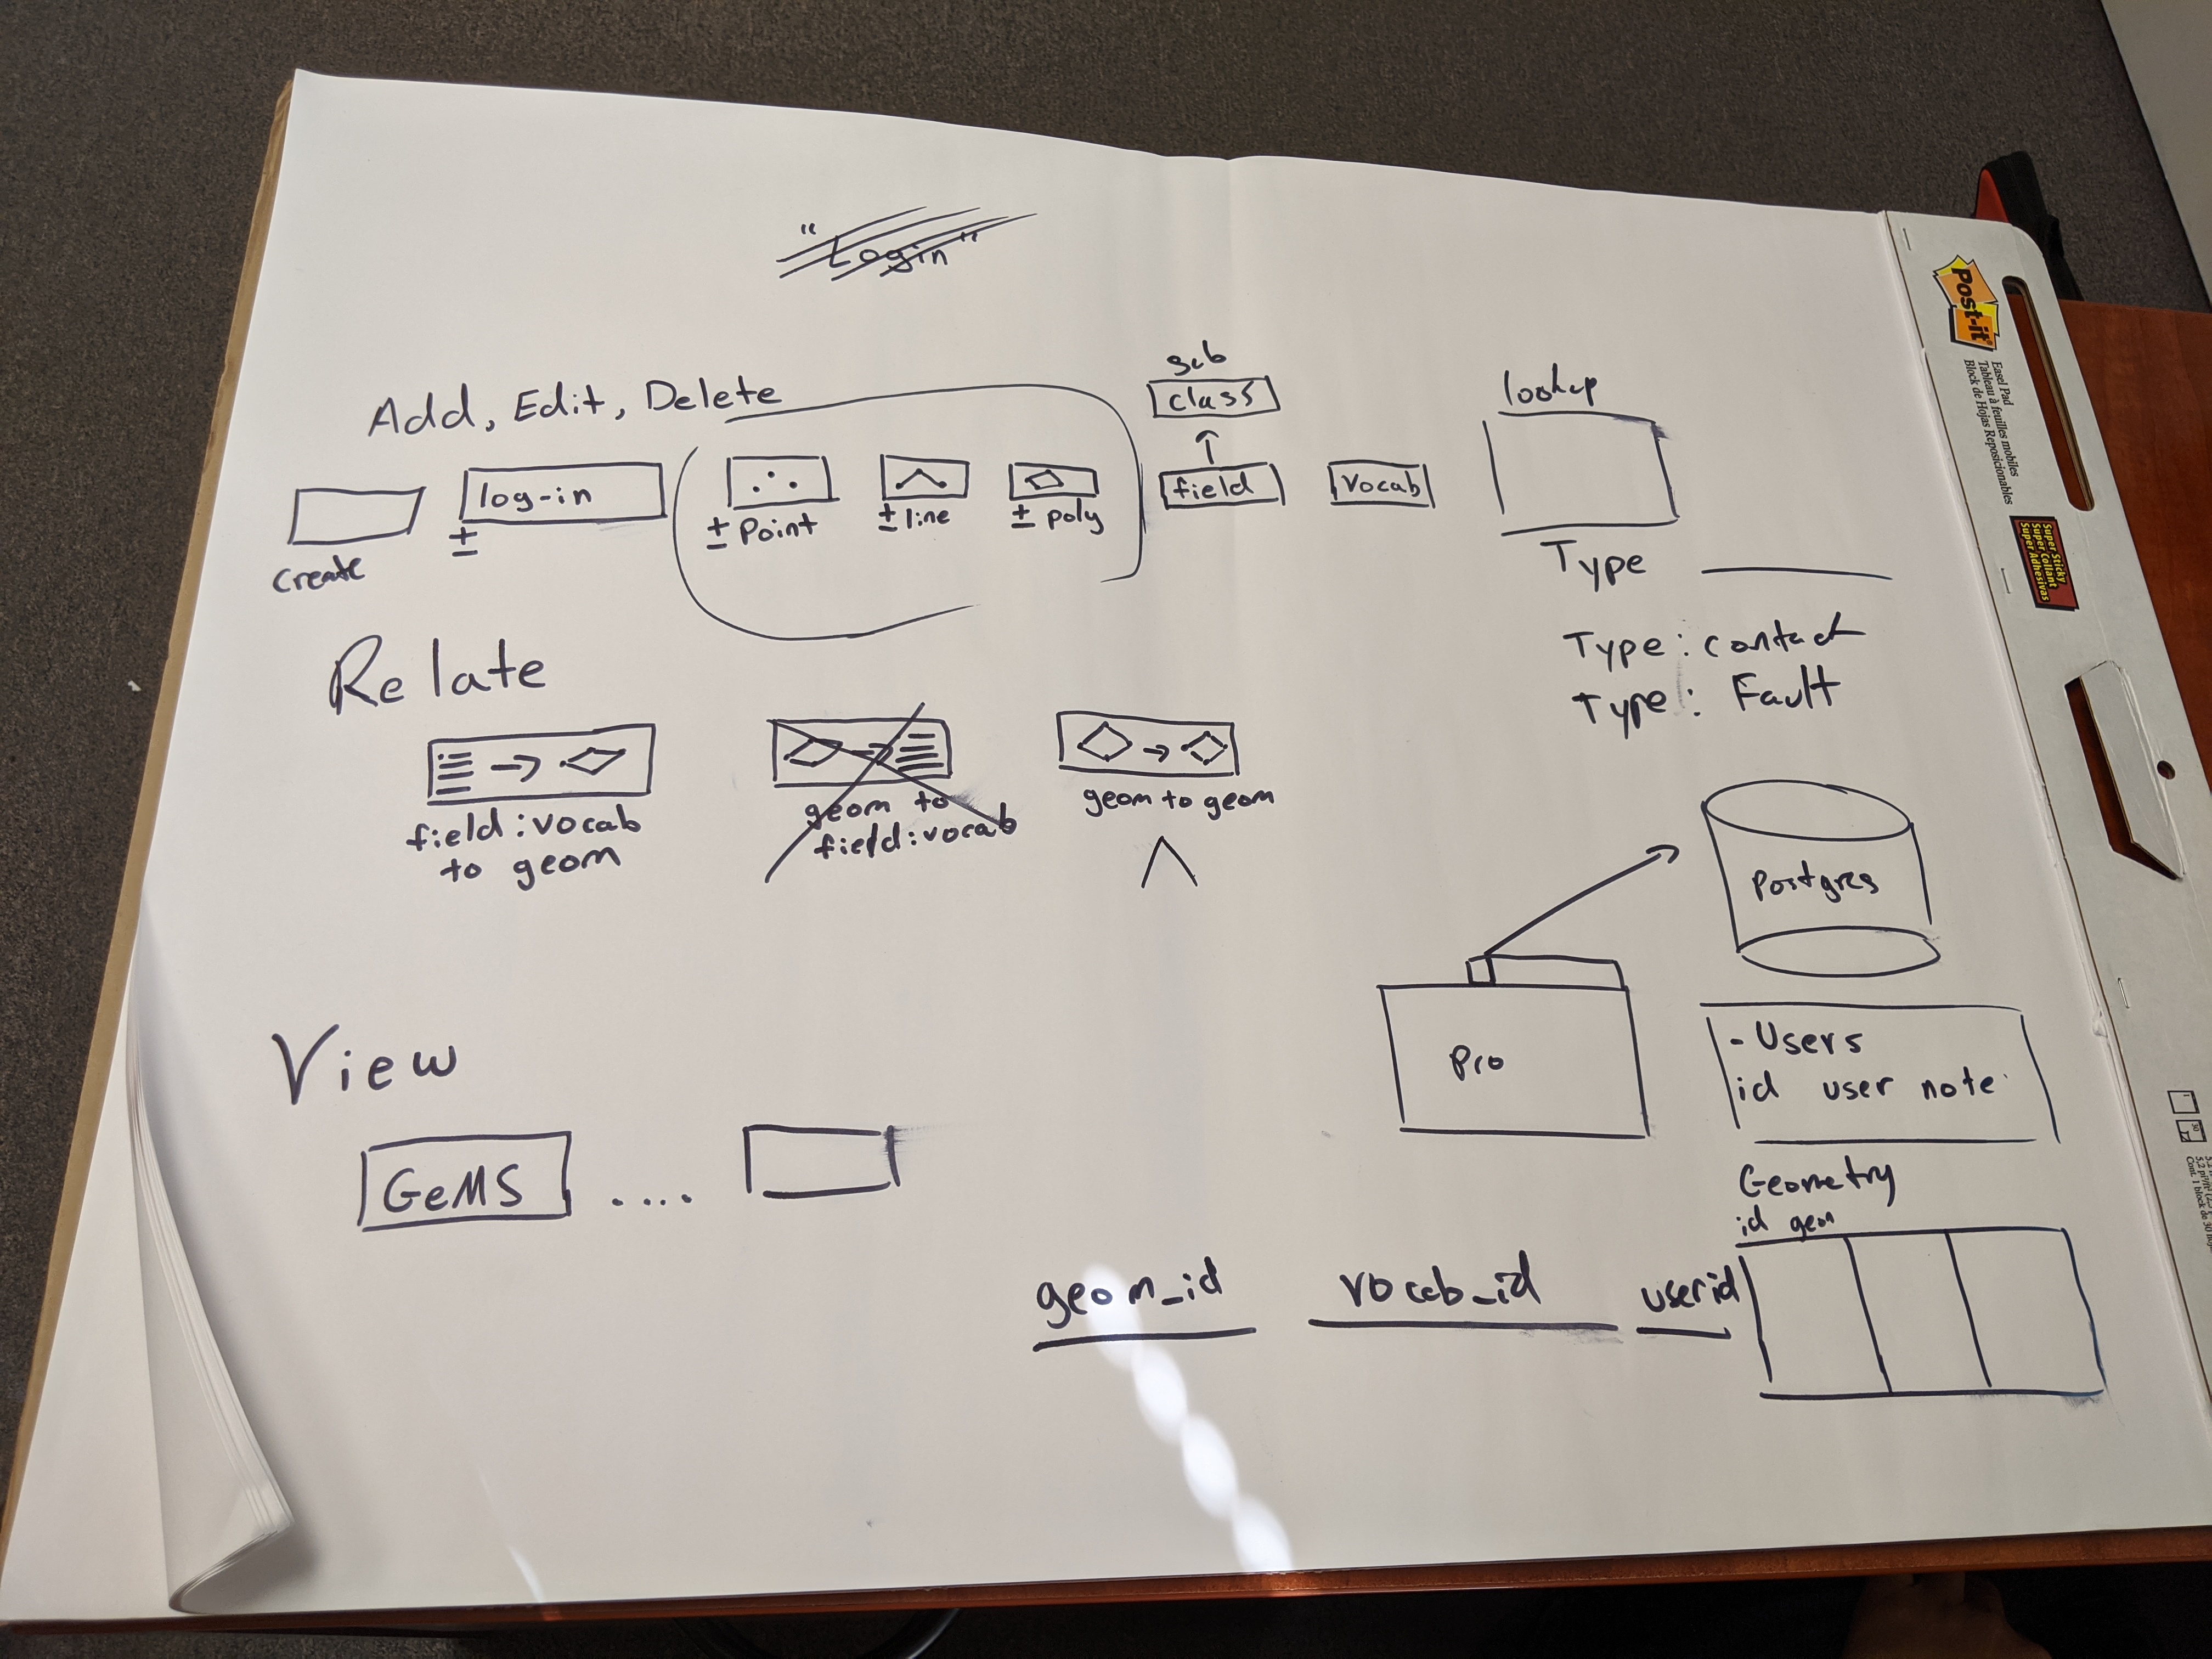 "Login"
Add, Edit, Delete
sub
class
lookup
Create
log-in
±
± Point
± line
± poly
field
vocab
Type
Type: contact
Type: Fault
Relate
field:vocab
to geom
geom to
field:vocab
geom to geom
Postgres
Pro
- Users
id user note
View
GeMS ....
Geometry
id geom
geom_id vocab_id userid
Post-it
Easel Pad
Tableau à feuilles mobiles
Block de Hojas Reposicionables
Super Sticky
Super Collant
Super Adhesivas